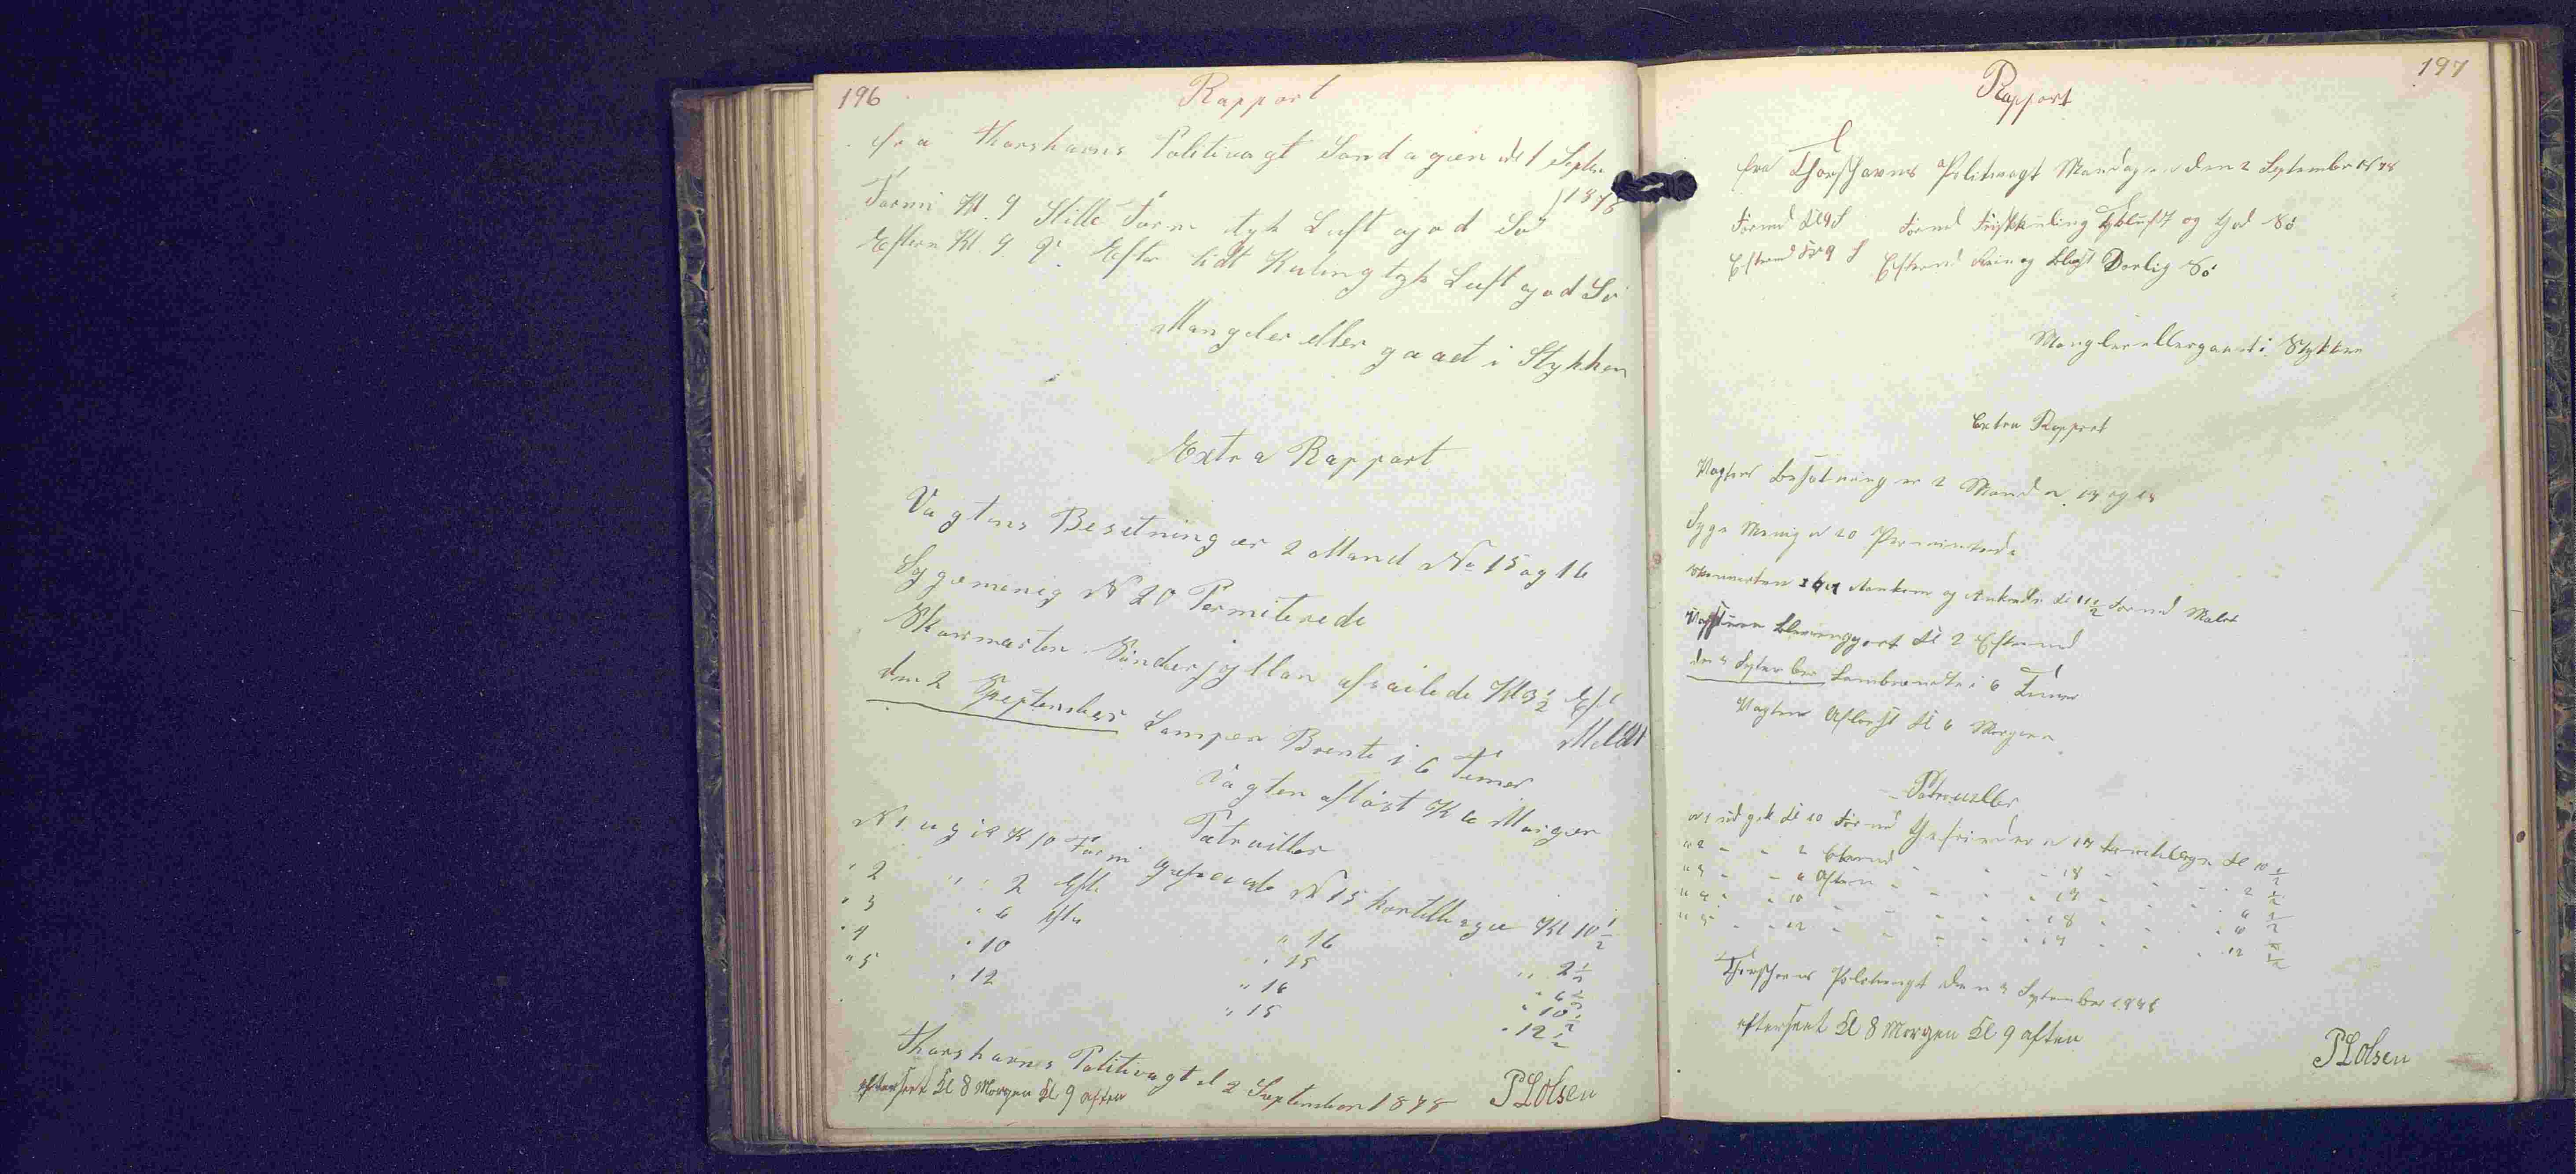 196
Rapport
fra Thorshavns Politivagt Søndagen d 1 Septbr
1878
Formi Kl. 9 Stille Form tyk Luft god Sö
Efterm Kl. 9 Efter lidt Kuling tyk Luft god Sö
Mangeler eller gaaet i Stykker
Extra Rapport
Vagtens Besetning er 2 Mand No 15 og 16
Sygemenig N 20 Permiterede
Skonnerten afseilede Kl 3 1/2 Eft
Meldt
den 2 September Lampen Brente i 6 Timer
Vagten afløst Kl 6 Morgen
Patruiller
N 1 Kl 10 Formi N 15 Kl 10 1/2
" 2 " " 2 Efte " 16 " " 2 1/2
" 3 " 6 Efte " 15 " 6 1/2
" 4 " 10 " 16 " 10 1/2
" 5 " 12 " 15 " 12 1/2
Thorshavns Politivagt d 2 September 1878
efterseet Kl 8 Morgen Kl 9 aften
PLOlsen
197
Rapport
fra Thorshavns Politivagt Mandagen den 2 September 1878
Formd Kl 9 Formd Frisk Kuling tyk Luft og god Sö
Eftermd Kl 9 Eftermd Dorlig Sö
Mangler eller gaaet i Stykker
Extra Rapport
Vagtens Besetning er 2 Mand N 17 og 18
Syge Menig N 20 Permiterede
Skonnerten Ankom og Ankrede Kl 11 1/2 Formd Meldt
Kl 2 Eftermd
den 3 September Lampen brendte i 6 Timer
Vagten Aflöst Kl 6 Morgen
Patrouiller
N 1 ud gik Kl 10 Formd N 17 Kl 10 1/2
" 2 - - 2 Eftermd - - 18 - - 2 1/2
" 3 - - 6 Aften - - 17 - - 6 1/2
" 4 - - 10 - - 18 - - 10 1/2
" 5 - - 12 - - 17 - - 12 1/2
Thorshavns Politivagt den 3 September 1878
efterseet Kl 8 Morgen Kl 9 aften
PLOlsen